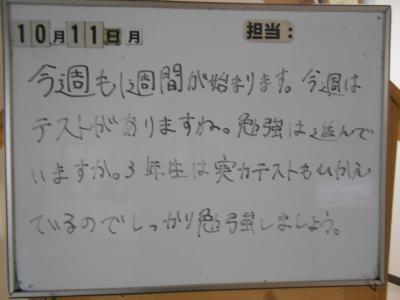 10月11日月 担当:
今週も1週間が始まります。今週は
テストがありますね。勉強は進んで
いますか。3年生は実力テストもひかえ
ているのでしっかり勉強しましょう。